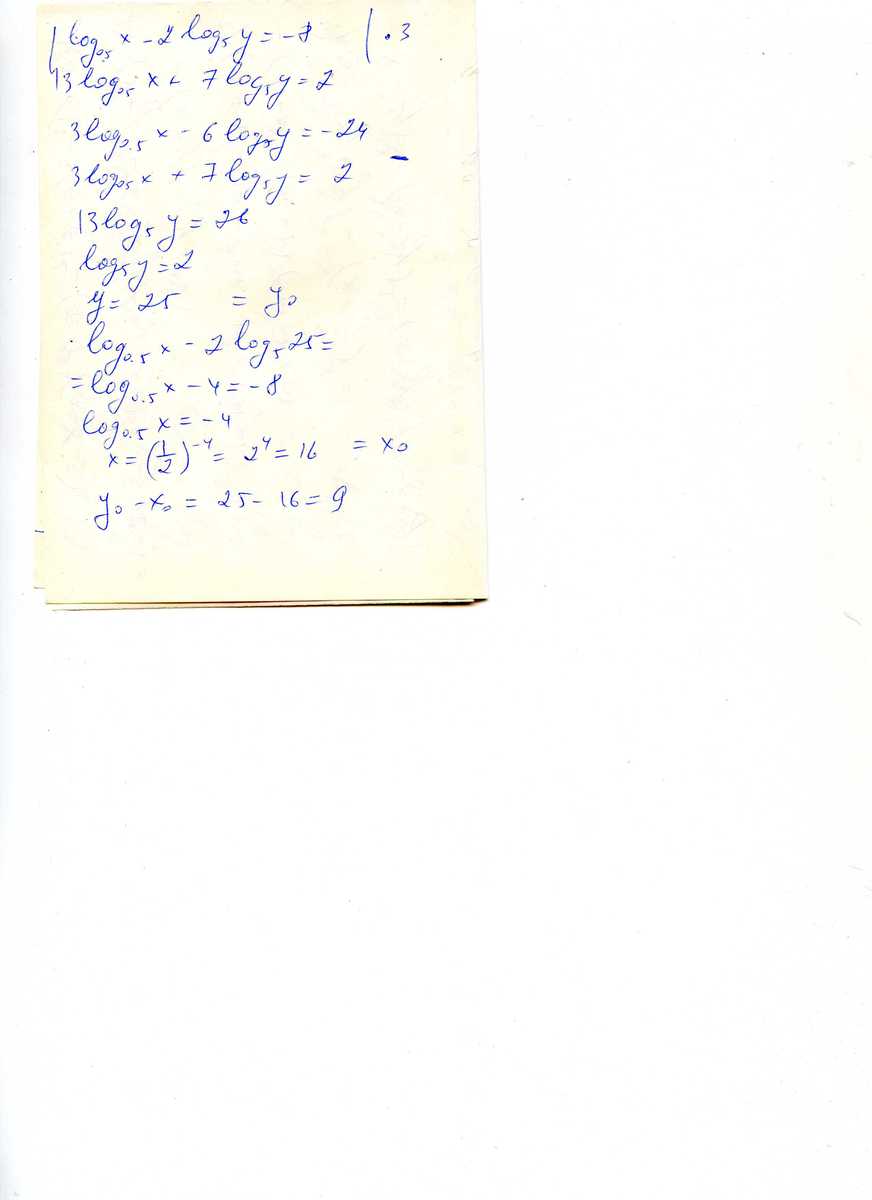 log₀.₅ x - 2 log₅ y = -8 | · 3
3 log₀.₅ x + 7 log₅ y = 2
3 log₀.₅ x - 6 log₅ y = -24
3 log₀.₅ x + 7 log₅ y = 2 -
13 log₅ y = 26
log₅ y = 2
y = 25 = y₀
log₀.₅ x - 2 log₅ 25 =
= log₀.₅ x - 4 = -8
log₀.₅ x = -4
x = (1/2)⁻⁴ = 2⁴ = 16 = x₀
y₀ - x₀ = 25 - 16 = 9